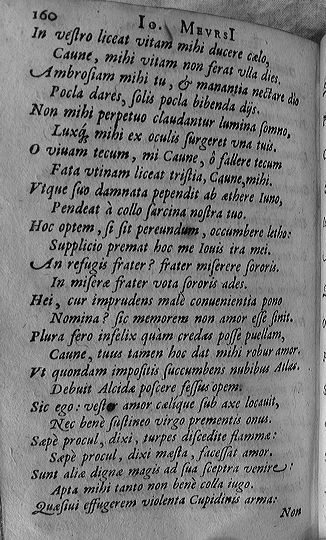 160 Io. MEVRSI
In vestro liceat vitam mihi ducere cælo,
Caune, mihi vitam non ferat vlla dies.
Ambrosiam mihi tu, & manantia nectare dio
Pocla dares, solis pocla bibenda dijs.
Non mihi perpetuo claudantur lumina somno,
Luxq́; mihi ex oculis surgeret vna tuis.
O viuam tecum, mi Caune, ô fallere tecum
Fata vtinam liceat tristia, Caune, mihi.
Vtque suo damnata pependit ab æthere Iuno,
Pendeat à collo sarcina nostra tuo.
Hoc optem, si sit pereundum, occumbere letho:
Supplicio premat hoc me Iouis ira mei.
An refugis frater? frater miserere sororis.
In miseræ frater vota sororis ades.
Hei, cur imprudens malè conuenientia pono
Nomina? sic memorem non amor esse sinit.
Plura fero infelix quàm credas posse puellam,
Caune, tuus tamen hoc dat mihi robur amor.
Vt quondam impositis succumbens nubibus Atlas
Debuit Alcidæ poscere fessus opem.
Sic ego: vester amor cælique sub axe locauit,
Nec benè sustineo virgo prementis onus.
Sæpè procul, dixi, turpes discedite flammæ:
Sæpè procul, dixi mæsta, facessat amor.
Sunt aliæ dignæ magis ad sua sceptra venire:
Apta mihi tanto non benè colla iugo.
Quæsiui effugerem violenta Cupidinis arma:
Non